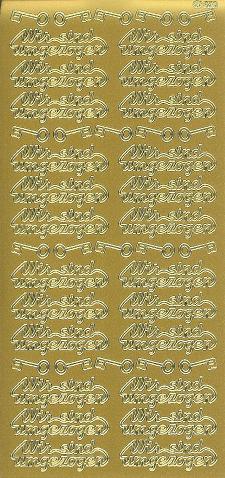 Wir sind Wir sind
umgezogen umgezogen
Wir sind Wir sind
umgezogen umgezogen
Wir sind Wir sind
umgezogen umgezogen
Wir sind Wir sind
umgezogen umgezogen
Wir sind Wir sind
umgezogen umgezogen
Wir sind Wir sind
umgezogen umgezogen
Wir sind Wir sind
umgezogen umgezogen
Wir sind Wir sind
umgezogen umgezogen
Wir sind Wir sind
umgezogen umgezogen
Wir sind Wir sind
umgezogen umgezogen
Wir sind Wir sind
umgezogen umgezogen
Wir sind Wir sind
umgezogen umgezogen